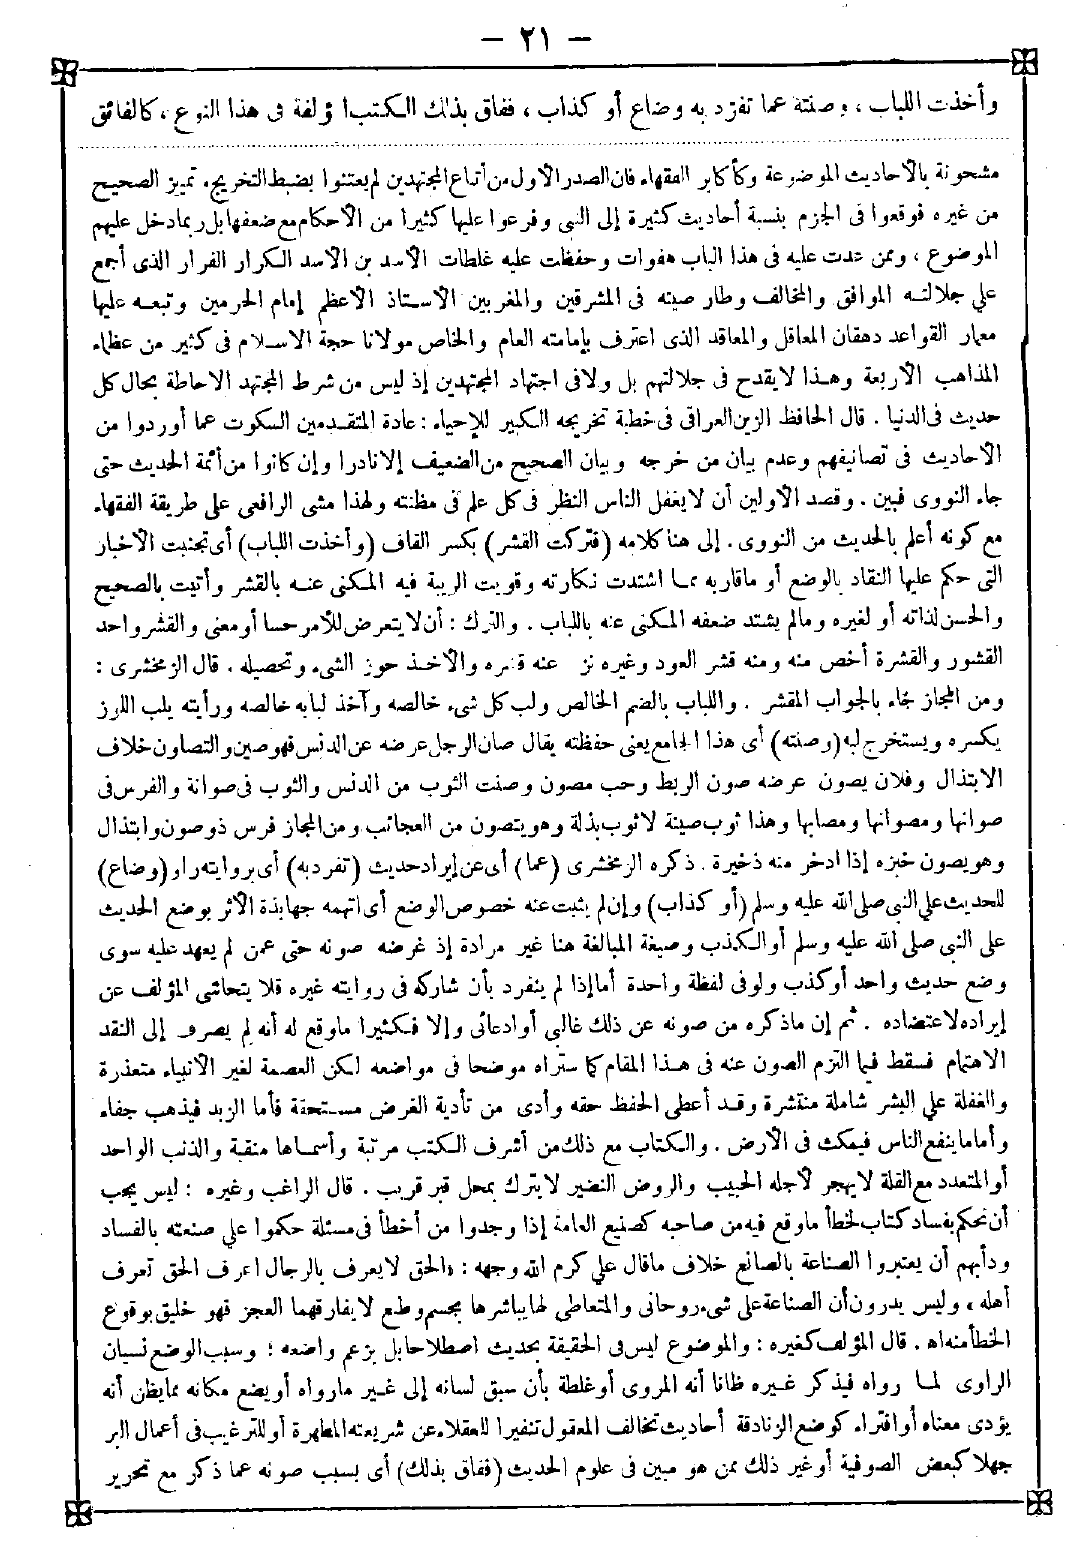 — ٢١ —
وأخذت اللباب ، وصنته عما تفرد به وضاع أو كذاب ، ففاق بذلك الكتب ا ؤلفة فى هذا النوع ، كالفائق
مشحونة بالأحاديث الموضوعة وكأكابر الفقهاء فان الصدر الأول من أتباع المجتهدين لم يعتنوا بضبط التخريج . تميز الصحيح
من غيره فوقعوا فى الجزم بنسبة أحاديث كثيرة إلى النبى وفرعوا عليها كثيرا من الأحكام مع ضعفها بل ربما دخل عليهم
الموضوع ، وممن عدت عليه فى هذا الباب هفوات وحفظت عليه غلطات الأسد بن الأسد الكرار الفرار الذى أجمع
على جلالته الموافق والمخالف وطار صيته فى المشرقين والمغربين الأستاذ الأعظم إمام الحرمين وتبعه عليها
معمار القواعد دهقان المعاقل والمعاقد الذى اعترف بإمامته العام والخاص مولانا حجة الاسلام فى كثير من عظماء
المذاهب الأربعة وهذا لا يقدح فى جلالتهم بل ولا فى اجتهاد المجتهدين إذ ليس من شرط المجتهد الاحاطة بحال كل
حديث فى الدنيا . قال الحافظ الزين العراقى فى خطبة تخريجه الكبير للإحياء : عادة المتقدمين السكوت عما أوردوا من
الأحاديث فى تصانيفهم وعدم بيان من خرجه وبيان الصحيح من الضعيف إلا نادرا وإن كانوا من أئمة الحديث حتى
جاء النووى فبين . وقصد الأولين أن لا يغفل الناس النظر فى كل علم فى مظنته ولهذا مشى الرافعى على طريقة الفقهاء
مع كونه أعلم بالحديث من النووى . إلى هنا كلامه (فتركت القشر) بكسر القاف (وأخذت اللباب) أى تجنبت الأخبار
التى حكم عليها النقاد بالوضع أو ماقاربه مما اشتدت نكارته وقويت الريبة فيه المكنى عنه بالقشر وأتيت بالصحيح
والحسن لذاته أو لغيره ومالم يشتد ضعفه المكنى عنه باللباب . والترك : أن لا يتعرض للأمر حسا أو معنى والقشر واحد
القشور والقشرة أخص منه ومنه قشر العود وغيره نز عنه قشره والأخذ حوز الشىء وتحصيله . قال الزمخشرى :
ومن المجاز جاء بالجواب المقشر . واللباب بالضم الخالص ولب كل شىء خالصه وآخذ لبابه خالصه ورأيته يلب اللوز
يكسره ويستخرج لبه (وصنته) أى هذا الجامع يعنى حفظته يقال صان الرجل عرضه عن الدنس فهو صين والتصاون خلاف
الابتذال وفلان يصون عرضه صون الربط وحب مصون وصنت الثوب من الدنس والثوب فى صوانة والفرس فى
صوانها ومصوانها ومصابها وهذا ثوب صينة لا ثوب بذلة وهو يتصون من العجائب ومن المجاز فرس ذو صون وابتذال
وهو يصون خبزه إذا ادخر منه ذخيرة . ذكره الزمخشرى (عما) أى عن إيراد حديث (تفرد به) أى بروايته راو (وضاع)
للحديث على النبى صلى الله عليه وسلم (أو كذاب) وإن لم يثبت عنه خصوص الوضع أى اتهمه جهابذة الأثر بوضع الحديث
على النبى صلى الله عليه وسلم أو الكذب وصيغة المبالغة هنا غير مرادة إذ غرضه صونه حتى عمن لم يعهد عليه سوى
وضع حديث واحد أو كذب ولو فى لفظة واحدة أما إذا لم ينفرد بأن شاركه فى روايته غيره فلا يتحاشى المؤلف عن
إيراده لاعتضاده . ثم إن ماذكره من صونه عن ذلك غالبى أو ادعائى وإلا فكثيرا ماوقع له أنه لم يصرف إلى النقد
الاهتمام فسقط فيما التزم الصون عنه فى هذا المقام كما ستراه موضحا فى مواضعه لكن العصمة لغير الأنبياء متعذرة
والغفلة على البشر شاملة منتشرة وقد أعطى الحفظ حقه وأدى من تأدية الغرض مستحقة فأما الزبد فيذهب جفاء
وأما ما ينفع الناس فيمكث فى الأرض . والكتاب مع ذلك من أشرف الكتب مرتبة وأسماها منقبة والذنب الواحد
أو المتعدد مع القلة لا يهجر لأجله الحبيب والروض النضير لا يترك بمحل قبر قريب . قال الراغب وغيره : ليس يجب
أن نحكم بفساد كتاب لخطأ ماوقع فيه من صاحبه كصنيع العامة إذا وجدوا من أخطأ فى مسئلة حكموا على صنعته بالفساد
ودأبهم أن يعتبروا الصناعة بالصانع خلاف ماقال على كرم الله وجهه : «الحق لا يعرف بالرجال اعرف الحق تعرف
أهله ، وليس يدرون أن الصناعة على شىء روحانى والمتعاطى لها يباشرها بجسم وطبع لا يفارقهما العجز فهو خليق بوقوع
الخطأ منه اه . قال المؤلف كغيره : والموضوع ليس فى الحقيقة بحديث اصطلاحا بل بزعم واضعه ؛ وسبب الوضع نسيان
الراوى لما رواه فيذكر غيره ظانا أنه المروى أو غلطة بأن سبق لسانه إلى غير مارواه أو يضع مكانه مما يظن أنه
يؤدى معناه أو افتراء كوضع الزنادقة أحاديث تخالف المعقول تنفيرا للعقلاء عن شريعته المطهرة أو للترغيب فى أعمال البر
جهلا كبعض الصوفية أو غير ذلك ممن هو مبين فى علوم الحديث (ففاق بذلك) أى بسبب صونه عما ذكر مع تحرير